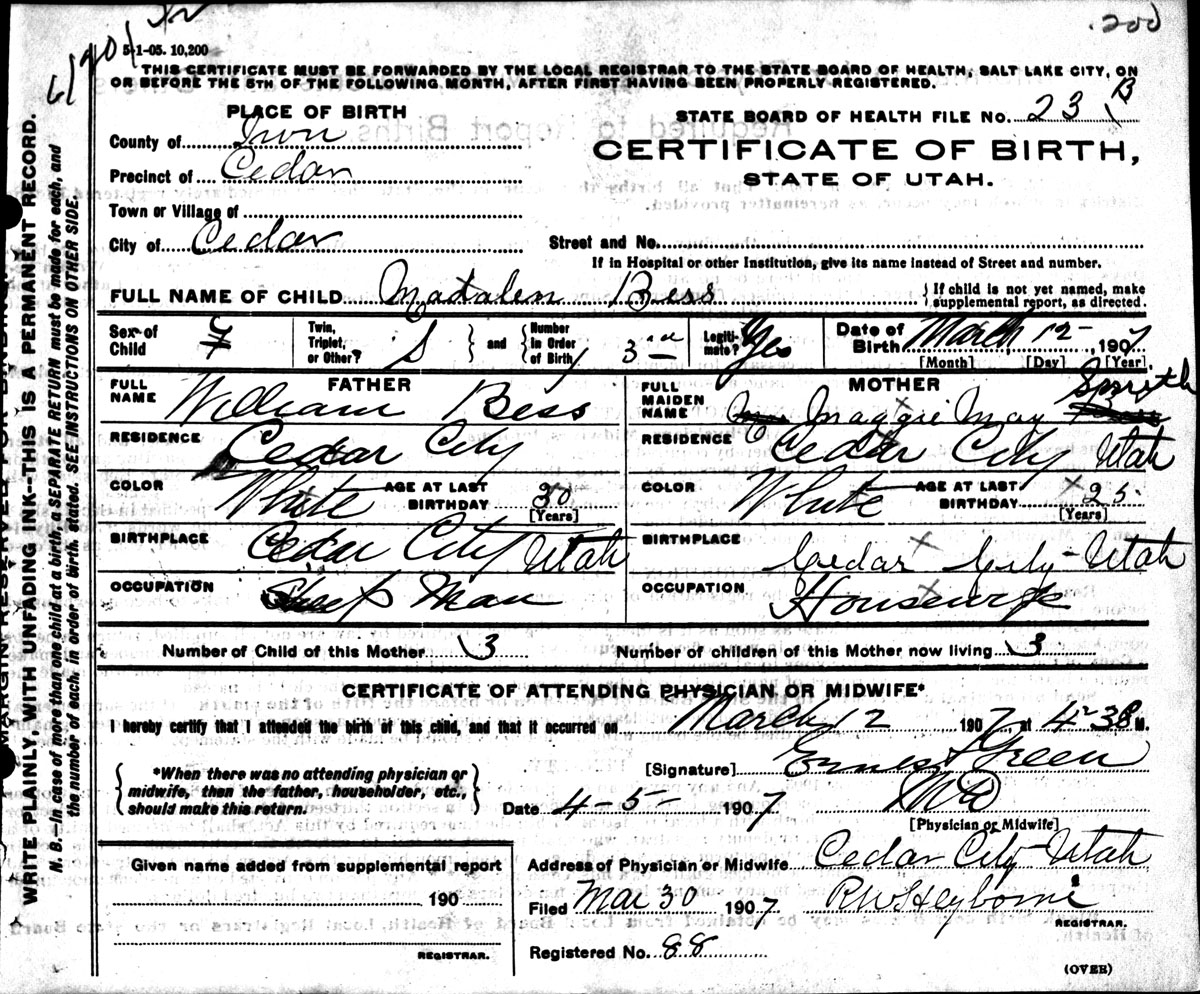 .200
5-1-05. 10,200
THIS CERTIFICATE MUST BE FORWARDED BY THE LOCAL REGISTRAR TO THE STATE BOARD OF HEALTH, SALT LAKE CITY, ON
OR BEFORE THE 5TH OF THE FOLLOWING MONTH, AFTER FIRST HAVING BEEN PROPERLY REGISTERED.
PLACE OF BIRTH
STATE BOARD OF HEALTH FILE NO. 23 B
County of Iron
CERTIFICATE OF BIRTH,
Precinct of Cedar
STATE OF UTAH.
Town or Village of
City of Cedar
Street and No.
If in Hospital or other Institution, give its name instead of Street and number.
FULL NAME OF CHILD Madalen Bess
{If child is not yet named, make supplemental report, as directed.
Sex of Child F
Twin, Triplet, or Other? S } and { Number in Order of Birth 3rd
Legitimate? Yes
Date of Birth March 12, 1907
[Month] [Day] [Year]
FATHER
FULL NAME William Bess
RESIDENCE Cedar City
COLOR White AGE AT LAST BIRTHDAY 30
[Years]
BIRTHPLACE Cedar City Utah
OCCUPATION Sheep Man
MOTHER
FULL MAIDEN NAME Maggie May Smith
RESIDENCE Cedar City Utah
COLOR White AGE AT LAST BIRTHDAY 25
[Years]
BIRTHPLACE Cedar City - Utah
OCCUPATION Housewife
Number of Child of this Mother 3
Number of children of this Mother now living 3
CERTIFICATE OF ATTENDING PHYSICIAN OR MIDWIFE*
I hereby certify that I attended the birth of this child, and that it occurred on March 12 1907 at 4-38 M.
{*When there was no attending physician or
midwife, then the father, householder, etc.,
should make this return.}
[Signature] Ernest Green
Date 4-5- 1907 MD
[Physician or Midwife]
Given name added from supplemental report
190
REGISTRAR.
Address of Physician or Midwife Cedar City Utah
Filed Mar 30 1907 R W Heyborne
REGISTRAR.
Registered No. 88
(OVER)
WRITE PLAINLY, WITH UNFADING INK--THIS IS A PERMANENT RECORD.
N. B.--In case of more than one child at a birth, a SEPARATE RETURN must be made for each, and
the number of each, in order of birth, stated. SEE INSTRUCTIONS ON OTHER SIDE.